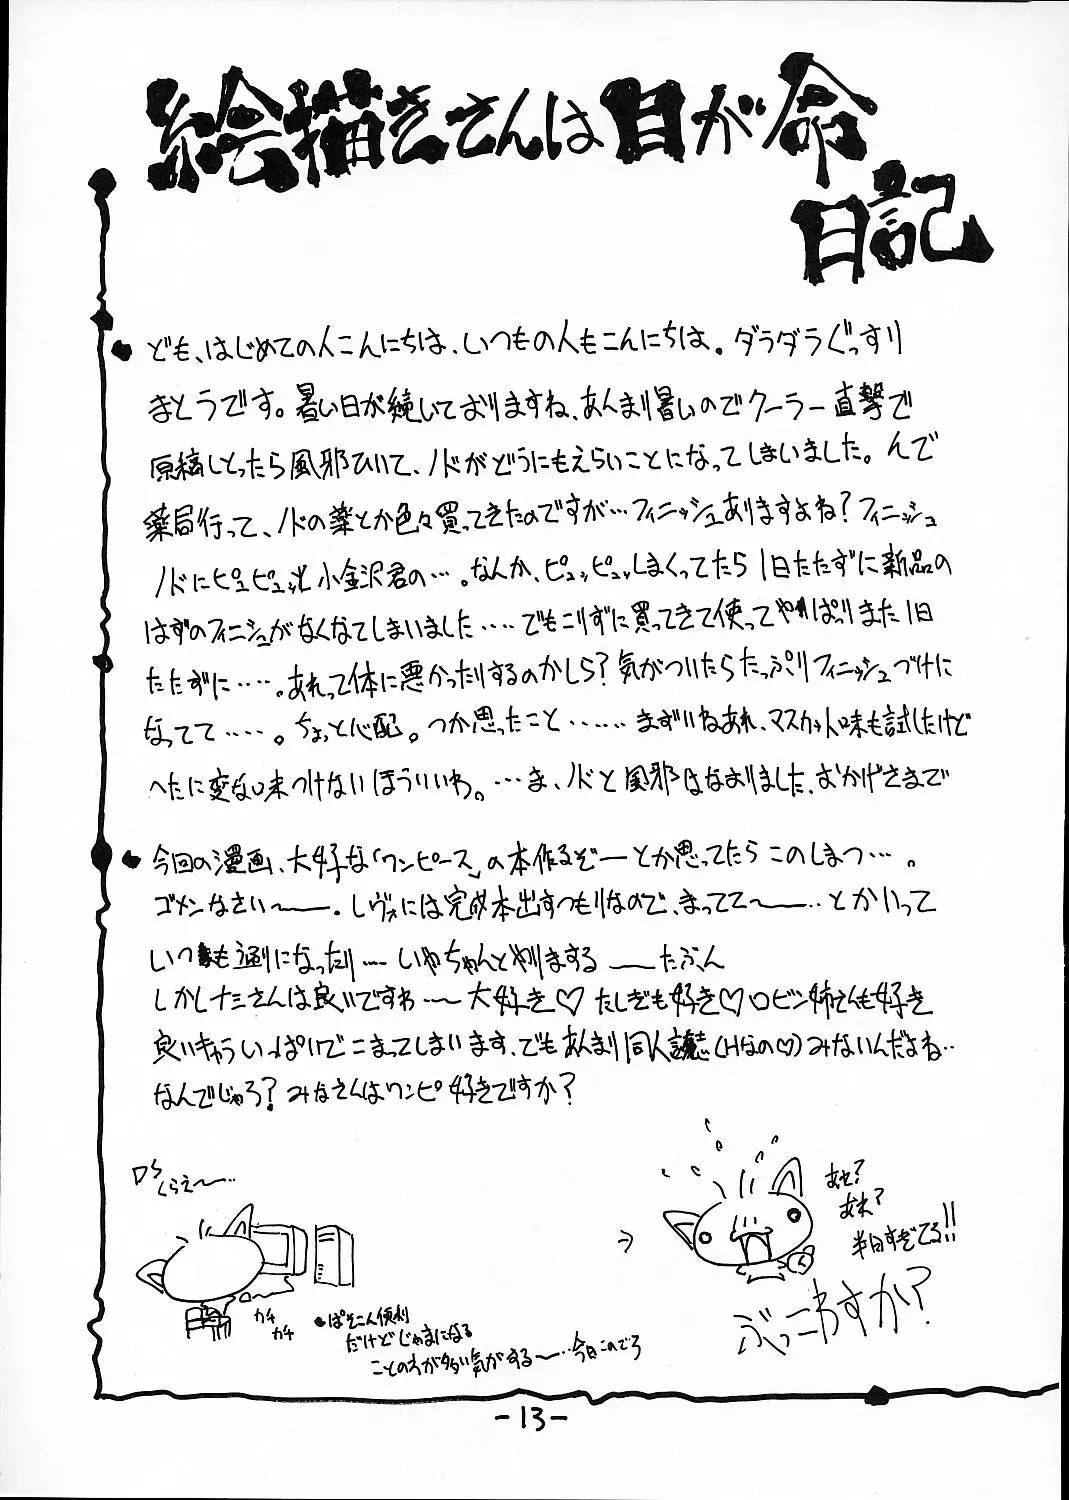 絵描きさんは目が命
日記
ども、はじめての人こんにちは、いつもの人もこんにちは。ダラダラぐっすり
まとうです。暑い日が続いておりますね、あんまり暑いのでクーラー直撃で
原稿しとったら風邪ひいて、ノドがどうにもえらいことになってしまいました。んで
薬局行って、ノドの薬とか色々買ってきたのですが…フィニッシュありますよね?フィニッシュ
ノドにピュピュッと小金沢君の…。なんか、ピュッピュッしまくってたら1日たたずに新品の
はずのフィニシュがなくなてしまいました‥‥でもこりずに買ってきて使ってやっぱりまた1日
たたずに‥‥。あれって体に悪かったりするのかしら?気がついたらたっぷりフィニッシュづけに
なってて‥‥。ちょっと心配。つか思ったこと‥‥‥まずいねあれ、マスカット味も試したけど
へたに変な味つけないほういいわ。…ま、ノドと風邪はなおりました、おかげさまで
今回の漫画、大好な「ワンピース」の本作るぞーとか思ってたらこのしまつ…。
ゴメンなさい〜ー。レヴォには完成本出すつもりなので、まってて〜ー‥とかいって
いつも通りになったり‥‥いやちゃんとやりまする ーたぶん
しかしナミさんは良いですわ〜大好き♡たしぎも好き♡ロビン姉さんも好き
良いきゃらいっぱいでこまってしまいます、でもあんまり同人誌(Hなの♡)みないんだよね‥
なんでじゃろ?みなさんはワンピ好きですか?
くらえ〜‥
カチ
カチ
ぱそこん便利
だけどじゃまになる
ことの方が多い気がする〜‥今日このごろ
あれ?
あれ?
半日すぎてる!!
ぶっこわすか?
-13-